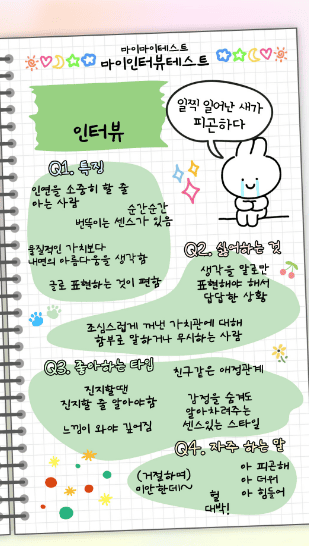 마이마이테스트
마이인터뷰테스트
인터뷰
일찍 일어난 새가
피곤하다
Q1. 특징
인연을 소중히 할 줄
아는 사람
순간순간
번뜩이는 센스가 있음
물질적인 가치보다
내면의 아름다움을 생각함
글로 표현하는 것이 편함
Q2. 싫어하는 것
생각을 말로만
표현해야 해서
답답한 상황
조심스럽게 꺼낸 가치관에 대해
함부로 말하거나 무시하는 사람
Q3. 좋아하는 타입
친구같은 애정관계
진지할땐
진지할 줄 알아야함
감정을 숨겨도
알아차려주는
센스있는 스타일
느낌이 와야 깊어짐
Q4. 자주 하는 말
(거절하며)
미안한데~
헐
대박!
아 피곤해
아 더워
아 힘들어